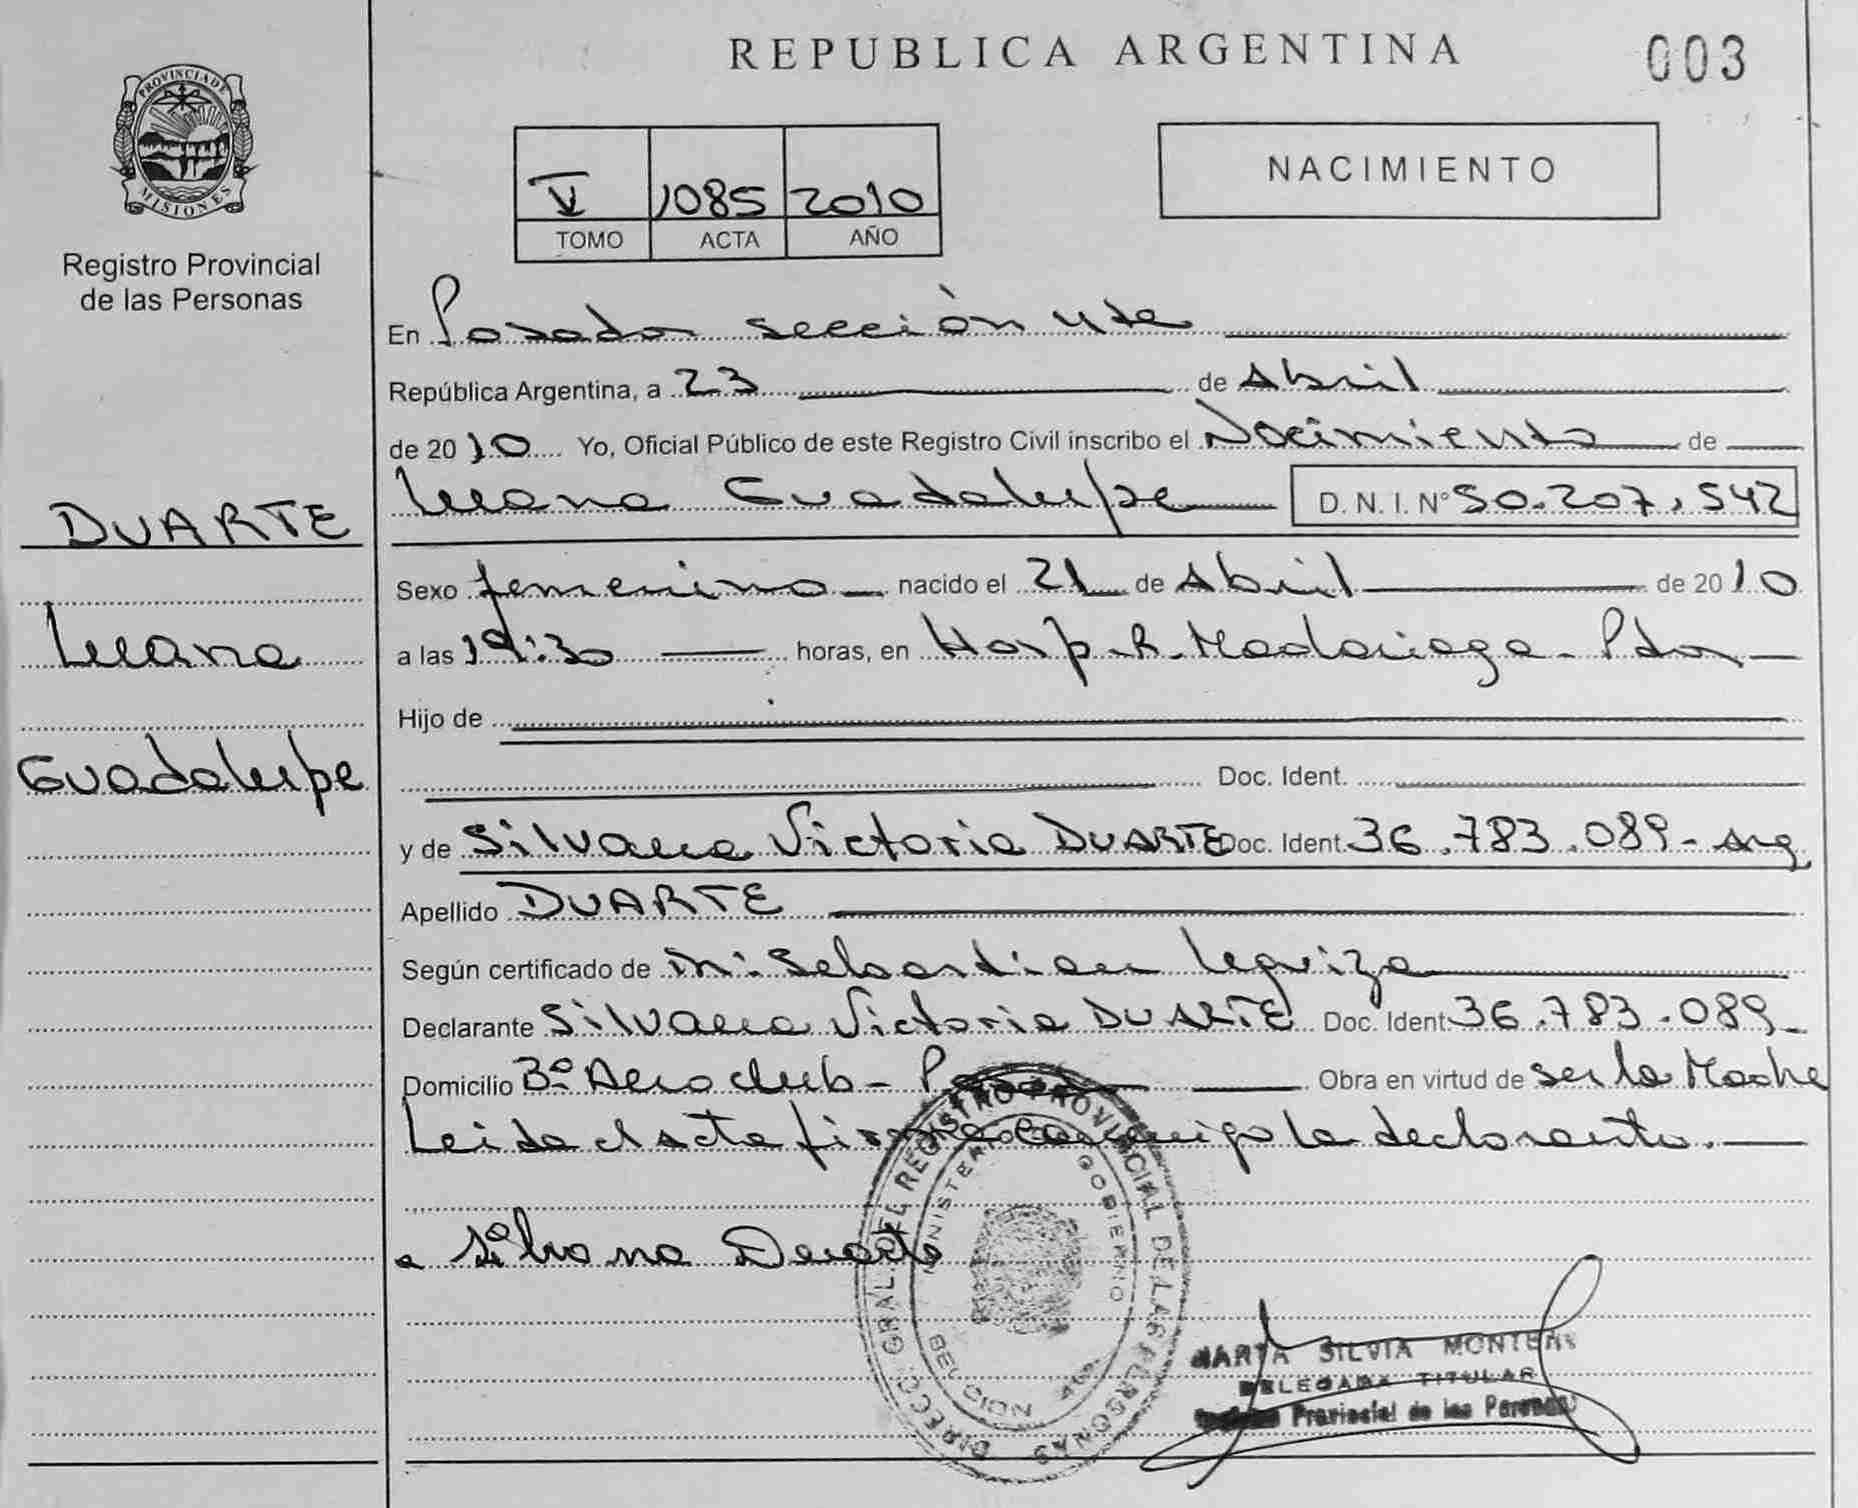 REPUBLICA ARGENTINA
003
PROVINCIA DE
MISIONES
Registro Provincial
de las Personas
V 1085 2010
TOMO ACTA AÑO
NACIMIENTO
En Posadas sección
República Argentina, a 23 de Abril
de 2010 Yo, Oficial Público de este Registro Civil inscribo el Nacimiento de
Luana Guadalupe D. N. I. N° 50.207.542
DUARTE
Luana
Guadalupe
Sexo femenino nacido el 21 de Abril de 2010
a las 19:30 horas, en Hosp. R. Madariaga - Pdas
Hijo de
Doc. Ident.
y de Silvana Victoria DUARTE Doc. Ident. 36.783.089 - Arg
Apellido DUARTE
Según certificado de Sebastian
Declarante Silvana Victoria DUARTE Doc. Ident. 36.783.089 -
Domicilio B° Aeroclub - Posadas Obra en virtud de ser la Madre
Leida el acta firma conmigo la declarante.
Silvana Duarte
DIRECC. GRAL. DEL REGISTRO PROVINCIAL DE LAS PERSONAS
MINISTERIO GOBIERNO
MARTA SILVIA
DELEGADA TITULAR
Provincial de las Personas